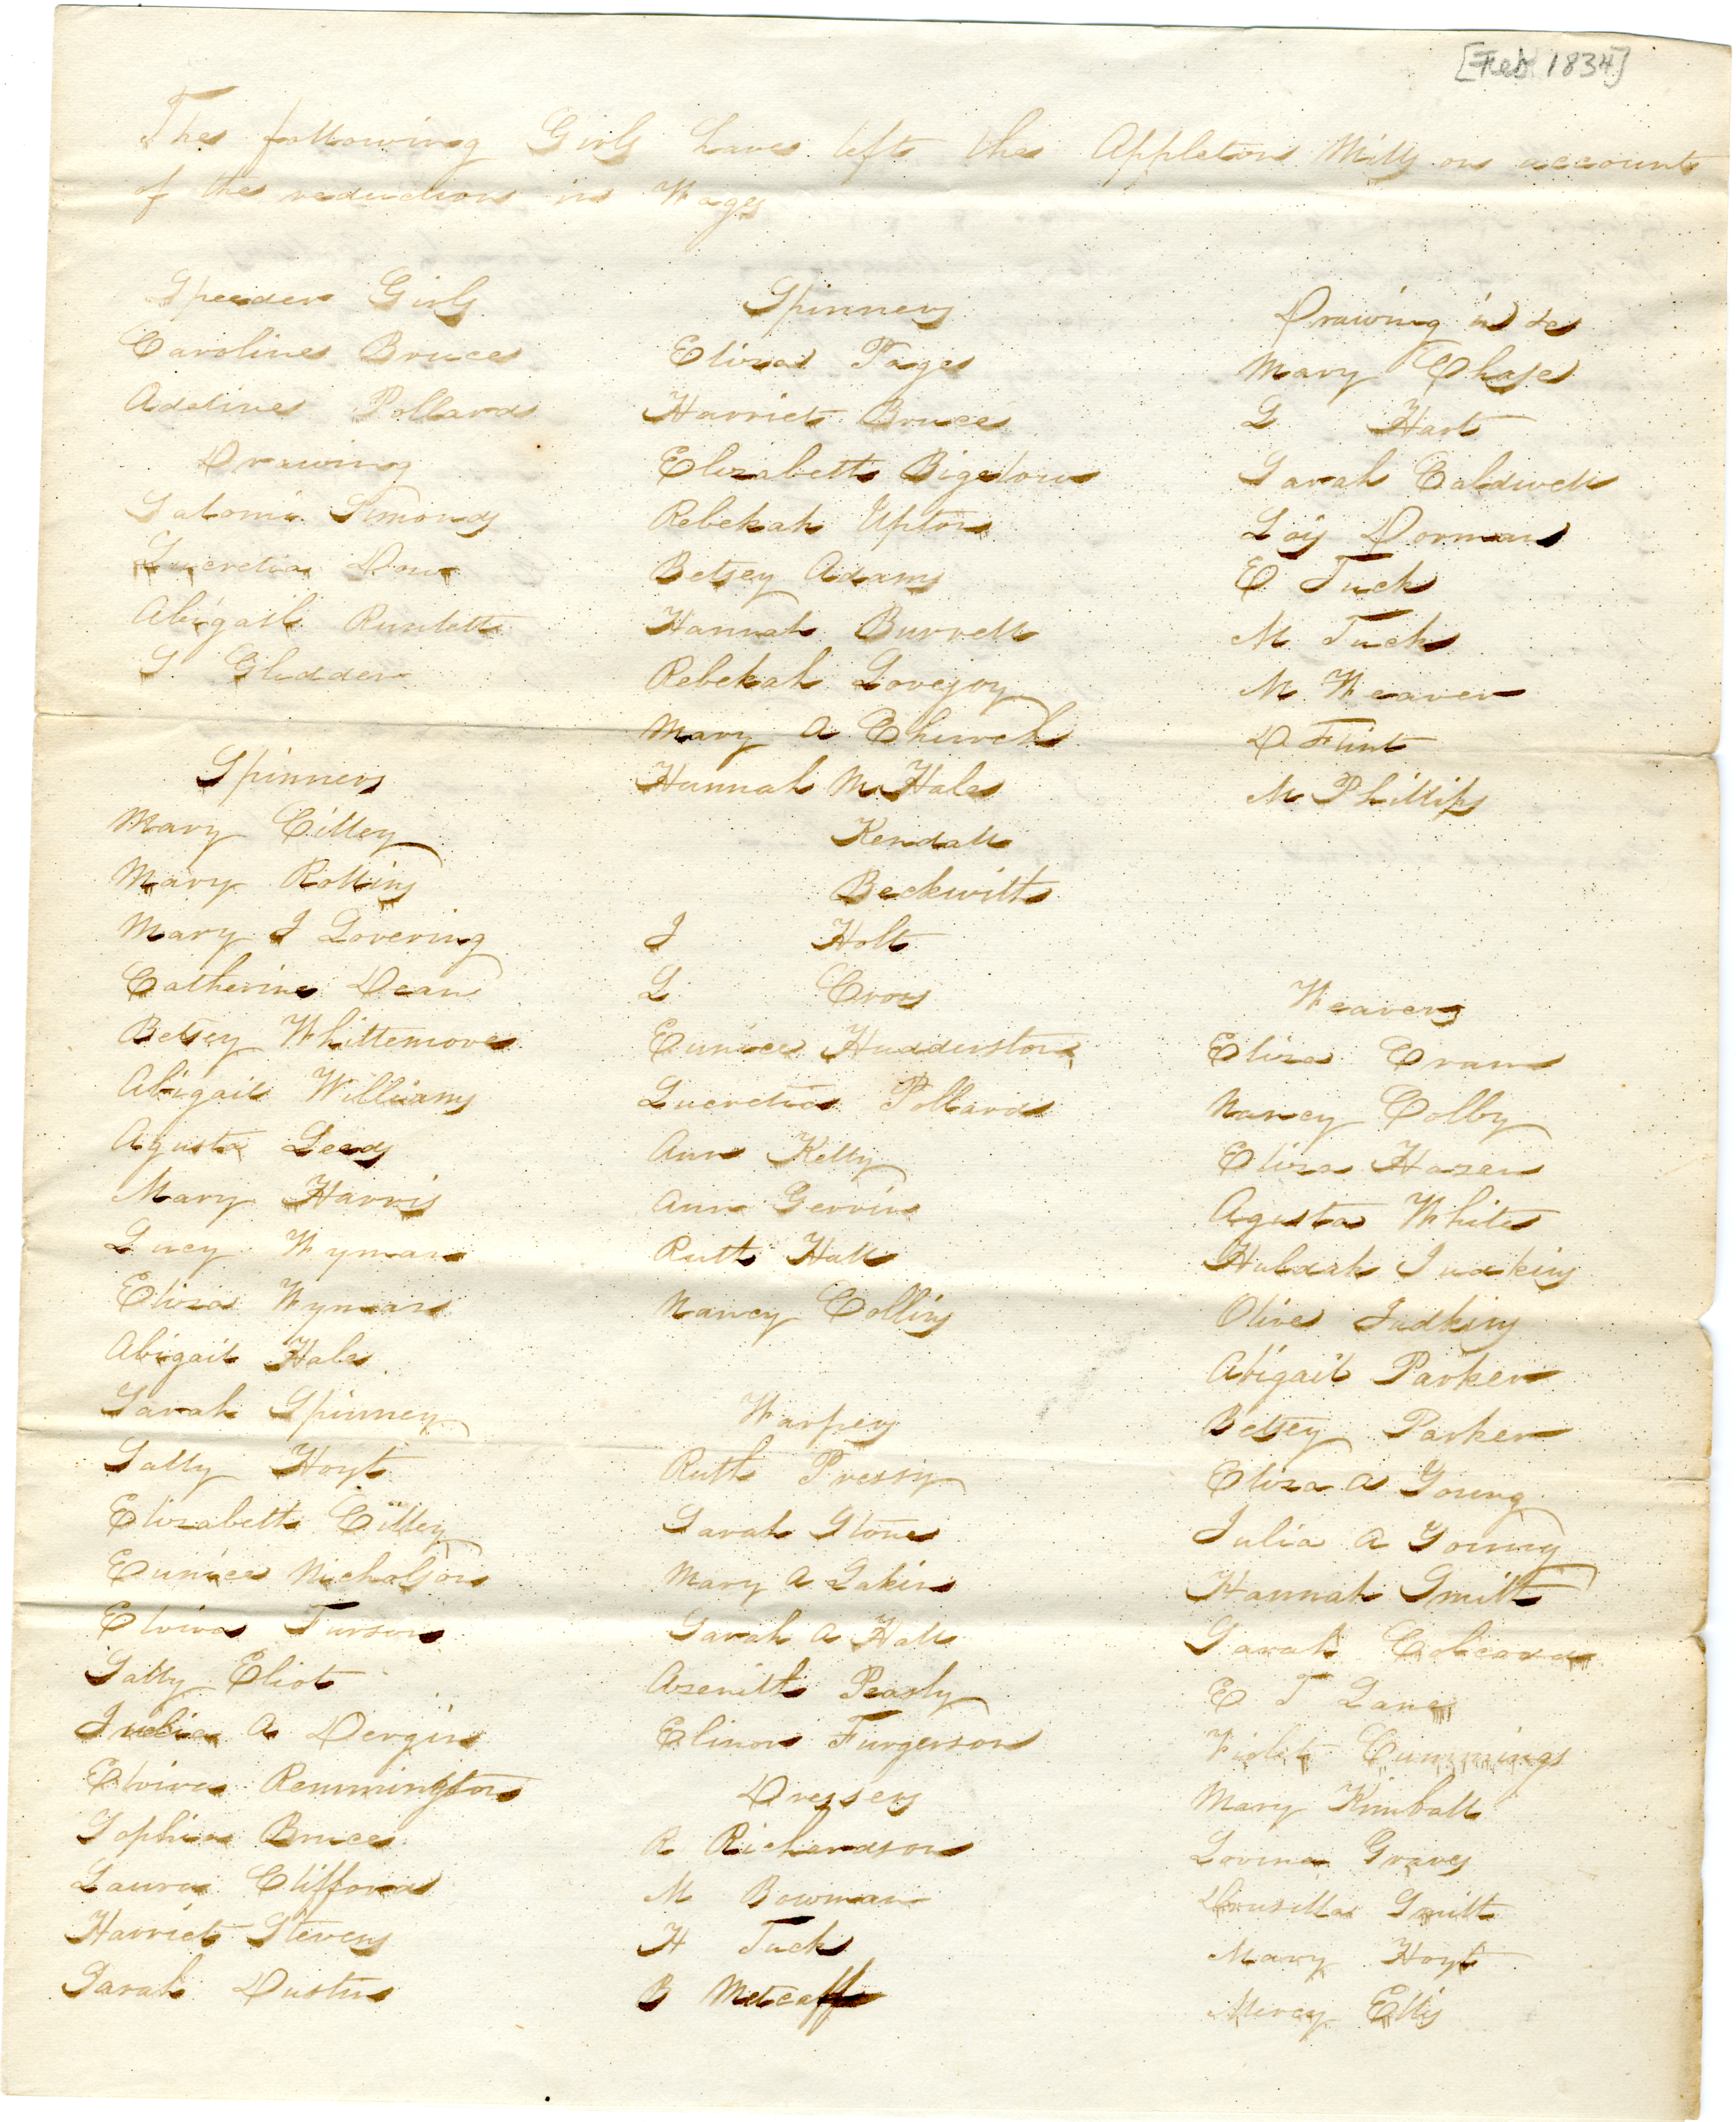 [Feb 1834]
The following Girls have left the Appleton Mills on account
of the reduction in Wages
Speeder Girls
Caroline Bruce
Adeline Pollard
Drawing
Salomi Simonds
Lucretia Dow
Abigail Runlett
S. Glidden
Spinners
Mary Cilley
Mary Rollins
Mary J Lovering
Catherine Dean
Betsey Whittemore
Abigail Williams
Agusta Leeds
Mary Harris
Lucy Wyman
Eliza Wyman
Abigail Hale
Sarah Spinney
Sally Hoyt
Elizabeth Cilley
Eunice Nicholson
Elvira Turson
Sally Eliot
Julia A Dergin
Elvira Remmington
Sophia Bruce
Laura Clifford
Harriet Stevens
Sarah Dustin
Spinners
Eliza Page
Harriet Bruce
Elizabeth Bigelow
Rebekah Upton
Betsey Adams
Hannah Burrell
Rebekah Lovejoy
Mary A Church
Hannah M Hale
Kendall
Beckwith
J Holt
L Cross
Eunice Hudderston
Lucretia Pollard
Ann Kelly
Ann Gerrin
Ruth Hall
Nancy Collins
Warpers
Ruth Pressy
Sarah Stone
Mary A Lakin
Sarah A Hall
Asenith Peasly
Elinor Furgerson
Dressers
R Richardson
M Bowman
H Tuck
B Metcalf
Drawing in &c
Mary Chase
L Hart
Sarah Caldwell
Lois Dorman
E Tuck
M Tuck
M Weaver
D Flint
M Phillips
Weavers
Eliza Cram
Nancy Colby
Eliza Hazen
Agusta White
Huldah Judkins
Olive Judkins
Abigail Parker
Betsey Parker
Eliza A Young
Julia A Young
Hannah Smith
Sarah
E T Lane
Violet Cummings
Mary Kimball
Lovina Graves
Drusilla Smith
Mary Hoyt
Mercy Ellis